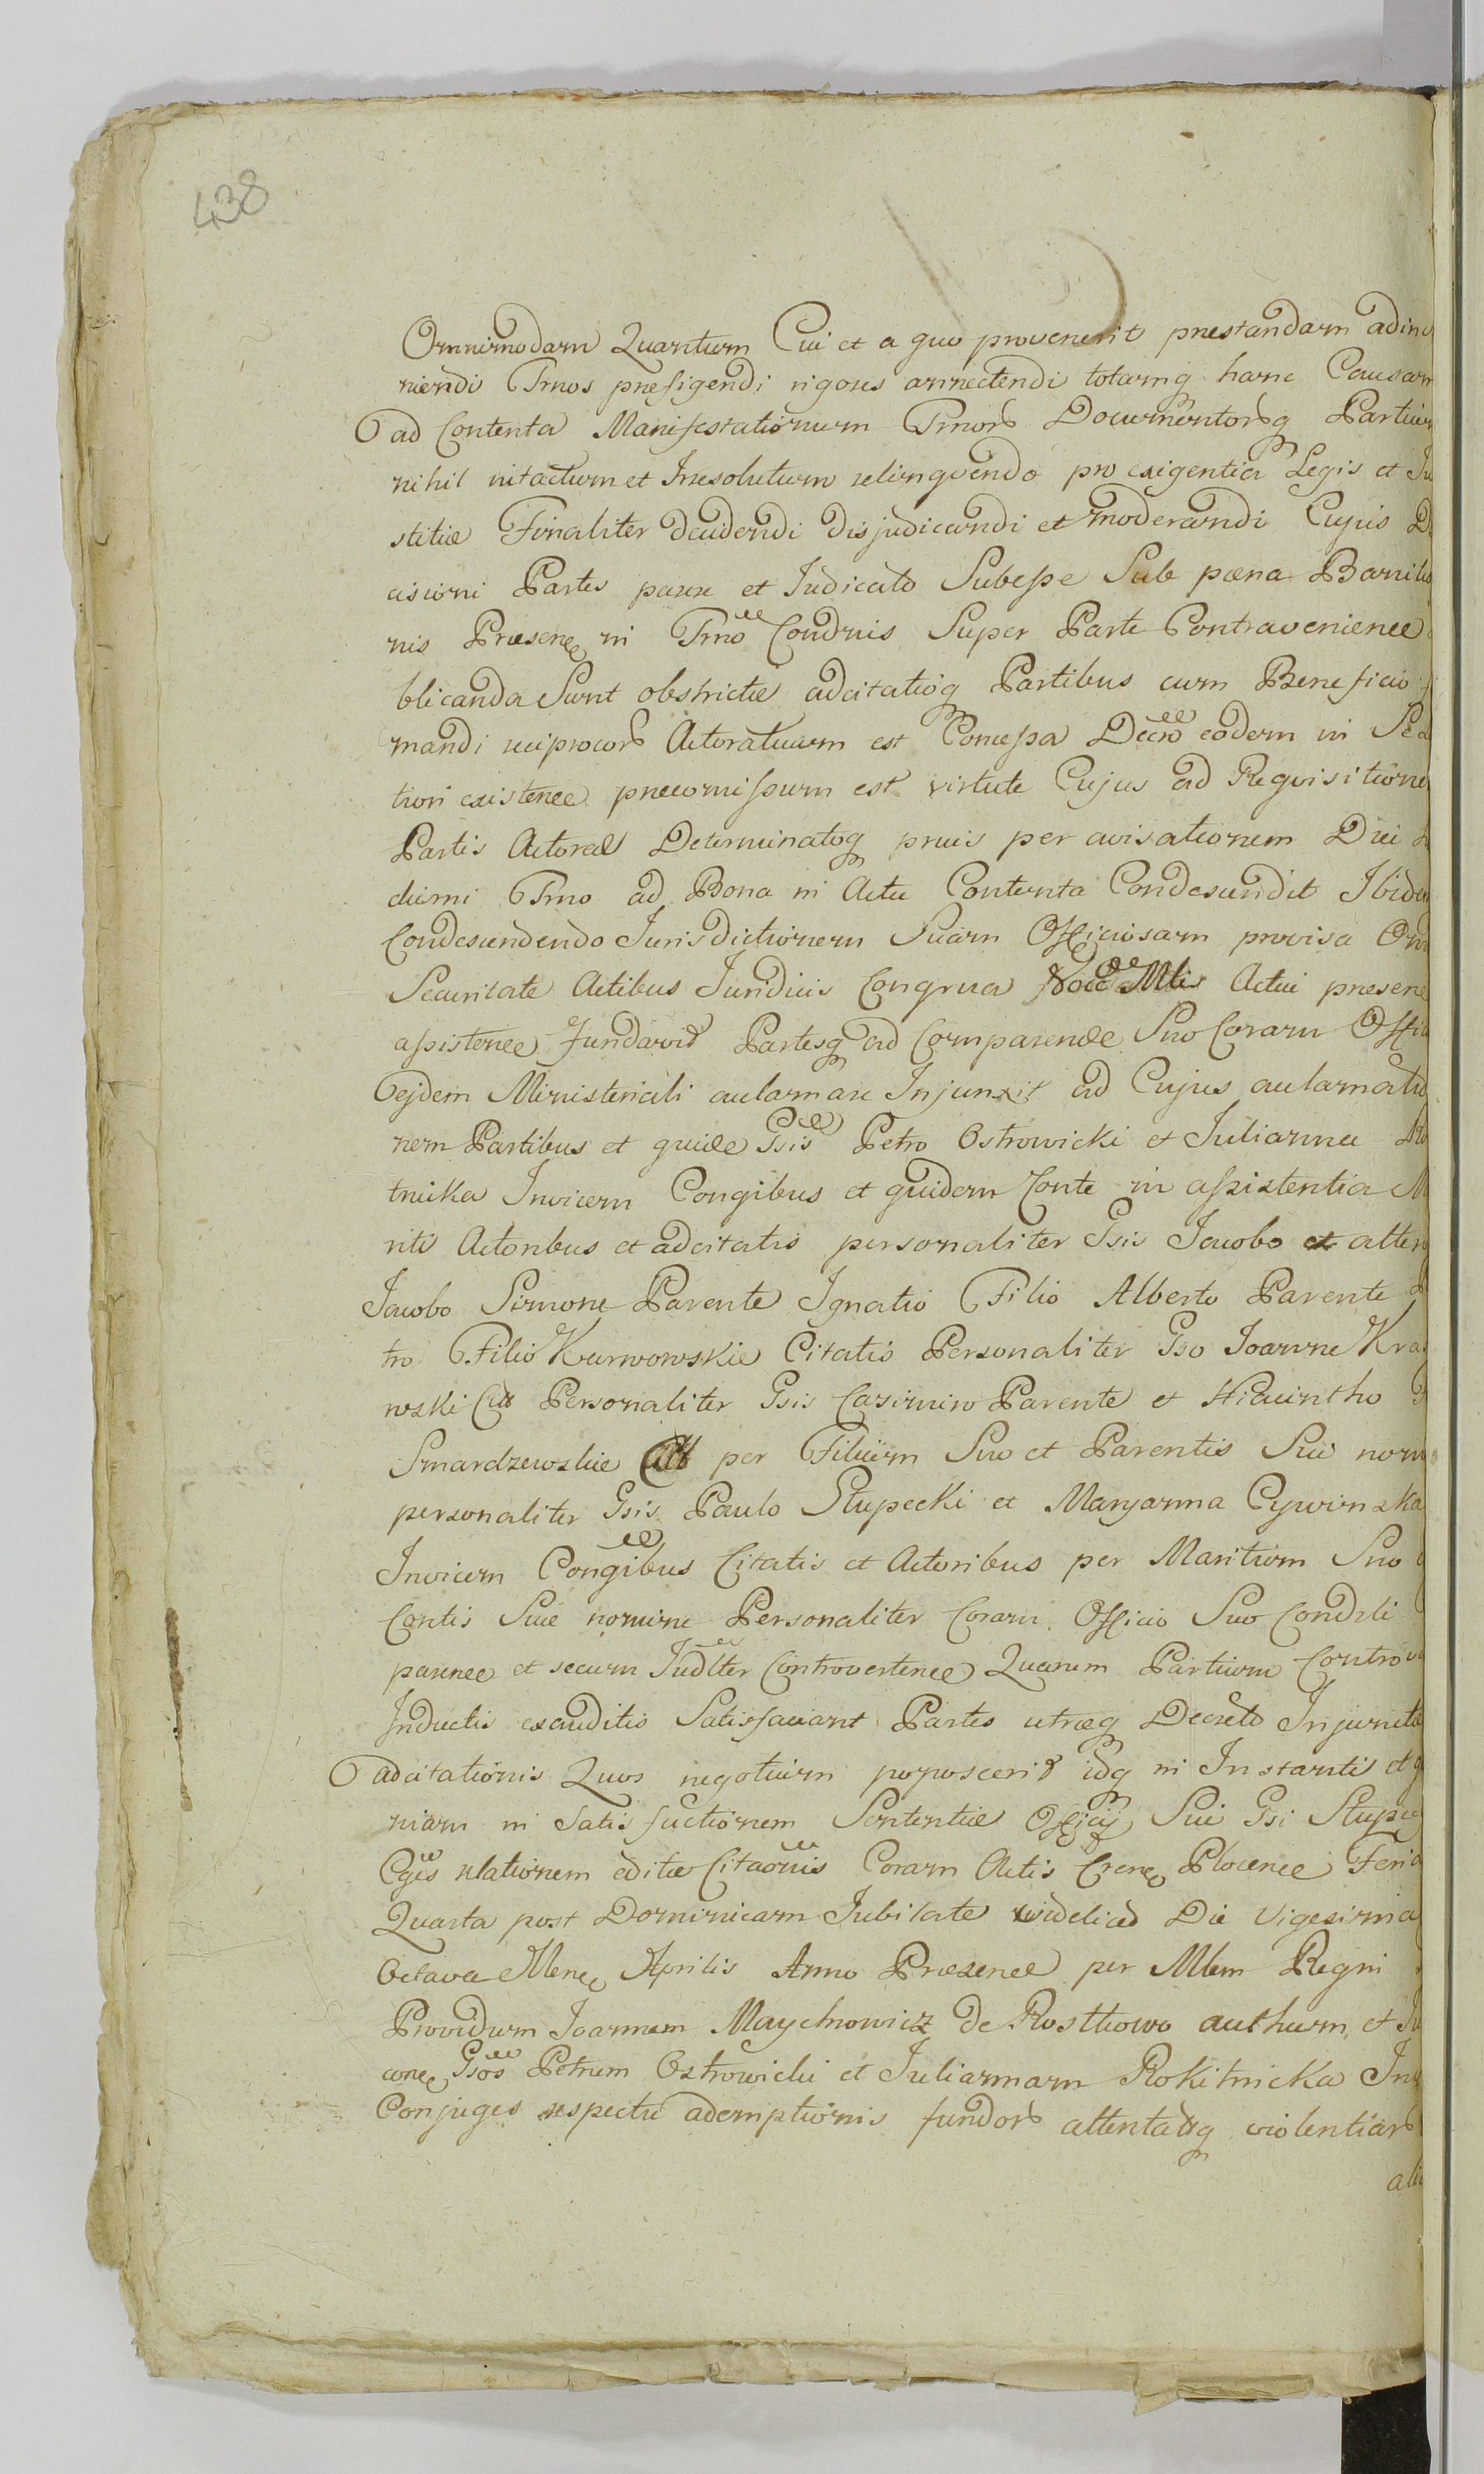 438
Omnimodam Quantum Cui et a quo provenerit prestandam adinv
niendi Tmos prefigendi rigores annectendi totamq hanc Causam
ad Contenta Manifestationum Tmor Documentorq Partium
nihil intactum et Irresolutum relinquendo pro exigentia Legis et Ju
stitiæ Finaliter decidendi disjudicandi et moderandi Cujus De
cisioni Partes parere et Judicato Subesse Sub pæna Bannitio
nis Præsenee in Tmo Condnis Super Parte Contraveniente
blicanda Sunt obstrictæ adcitatiq Partibus cum Beneficio
mandi reciprocor Actoratuum est Concessa Decro eodem in Se
tiori existenee premissum est virtute Cujus ad Requisitione
Partis Actoreæ Determinatoq prius per avisationem Diei
diurni Tmo ad Bona in Actu Contenta Condescendit Ibide
Condescendendo Jurisdictionem Suam Officiosam provisa Omi
Securitate Actibus Juridicis Congrua Mlis Actui presene
assistenee fundavit Partesq ad Comparendæ Suo Coram Offic
ejdem Ministeriali aclamare Injunxit ad Cujus aclamatio
nem Partibus et quidæ Gsis Petro Ostrowicki et Julianna Ro
tnicka Invicem Congibus et quidem Conte in assistentia M
riti Actoribus et adcitatis personaliter Gsis Jacobo et alter
Jacobo Simone Parente Ignatio Filio Alberto Parente
tro Filio Kurwowskie Citatis Personaliter Gso Joanne Kra
wski Citt Personaliter Gsis Casimiro Parente et Hiacintho
Smardzewskie Citt per Filium Suo et Parentis Sui nom
personaliter Gsis Paulo Stupecki et Maryanna Cywinska
Invicem Congibus Citatis et Actoribus per Maritum Suo
Contis Suæ nomine Personaliter Coram Officio Suo Condsli
parenee et secum Judlter Controvertenee Quarum Partium Controv
Inductis exauditis Satisfaciant Partes utræq Decreto Injuncta
adcitationis Quos negotium poposcerit idq in Instantis et q
niam in Satisfactionem Sententiæ Officij Sui Gsi Stupec
Cges relationem editæ Citaonis Coram Actis Crene Plocenee Feria
Quarta post Dominicam Jubilate videlicet Die Vigesima
Octava Mene Aprilis Anno Præsenee per Mlem Regni
Providum Joannem Maychrowicz de Rostkowo authum et Ju
cone Gsos Petrum Ostrowicki et Juliannam Rokitnicka Inv
Conjuges respectu ademptionis fundor attentatq violentiar
ali